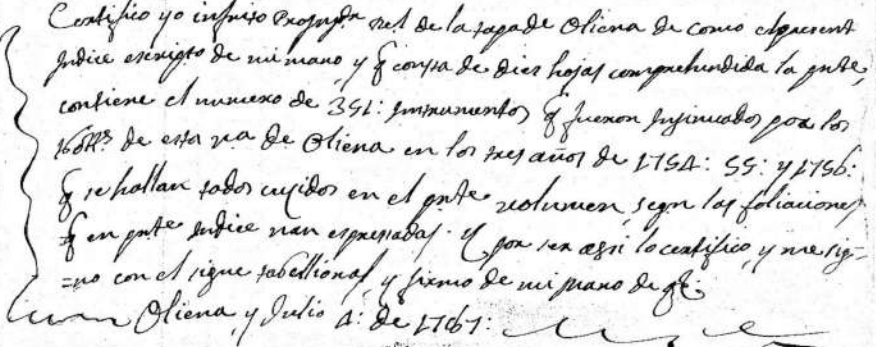 Certifico yo infrṭo Insinuadr Rel de la tapa de Oliena de como el present
Indice escripto de mi mano, y q consta de dies hojas comprehendida la pnte,
contiene el numero de 351: Instrumentos q fueron Insinuados por los
de esta va de Oliena en los tres años de 1754: 55: y 1756:
q se hallan todos cusidos en el pnte volumen, segn las foliaciones
q en pnte Indice van espresadas. Y por ser assi lo certifico, y me sig=
=no con el signe tabellional, y firmo de mi mano de q
Oliena, y Julio 4: de 1767: